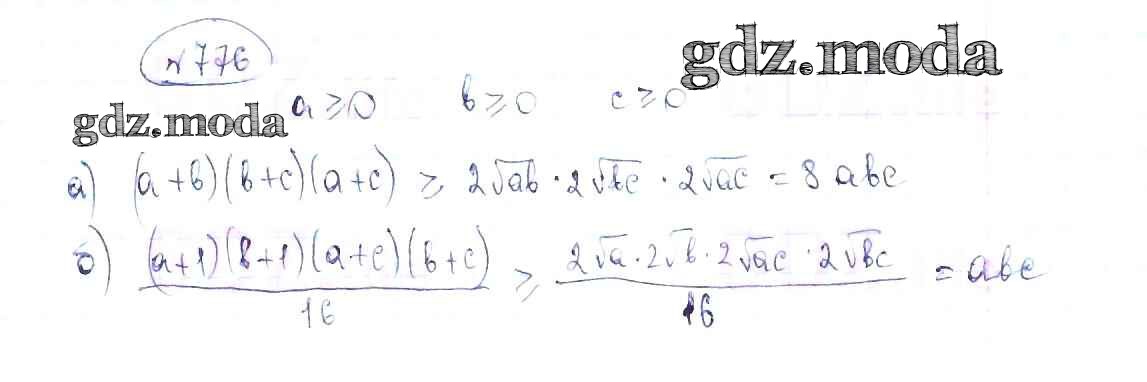 №776
gdz.moda
gdz.moda
a ≥ 0 b ≥ 0 c ≥ 0
а) (a+b)(b+c)(a+c) ≥ 2√ab · 2√bc · 2√ac = 8abc
б) (a+1)(b+1)(a+c)(b+c) / 16 ≥ 2√a · 2√b · 2√ac · 2√bc / 16 = abc